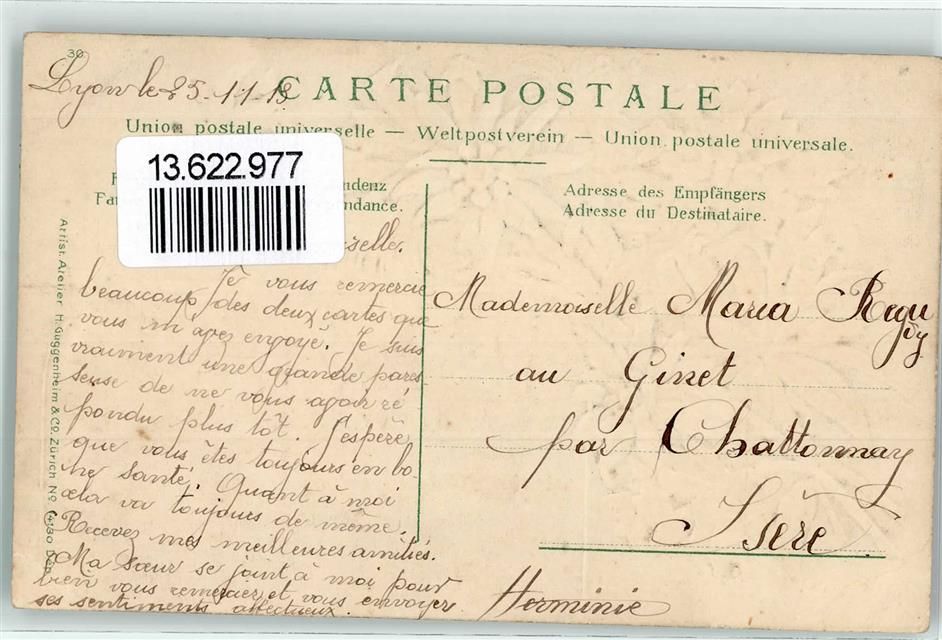 30
Lyon le 25-11-18
CARTE POSTALE
Union postale universelle — Weltpostverein — Union postale universale.
13.622.977
Adresse des Empfängers
Adresse du Destinataire.
Je vous remercie
beaucoup des deux cartes que
vous m'avez envoyé. Je suis
vraiment une grande pares
seuse de ne vous avoir ré
pondu plus tôt. J'espère
que vous êtes toujours en bo
ne santé. Quant à moi
cela va toujours de même.
Recevez mes meilleures amitiés.
Ma sœur se joint à moi pour
bien vous remercier et vous envoyer
ses sentiments affectueux.
Herminie
Mademoiselle Maria Reguy
au Ginet
par Chattonnay
Isère
Artist. Atelier H. Guggenheim & Co., Zürich No